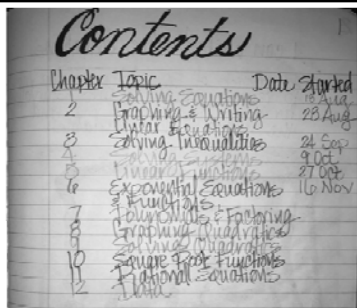 Contents
Chapter Topic Date Started
Solving Equations 13 Aug
2 Graphing & Writing 23 Aug
Linear Equations
3 Solving Inequalities 24 Sep
4 Solving Systems 9 Oct
5 Linear Functions 27 Oct
6 Exponential Equations 16 Nov
& Functions
7 Polynomials & Factoring
8 Graphing Quadratics
9 Solving Quadratics
10 Square Root Functions
11 Rational Equations
12 Data